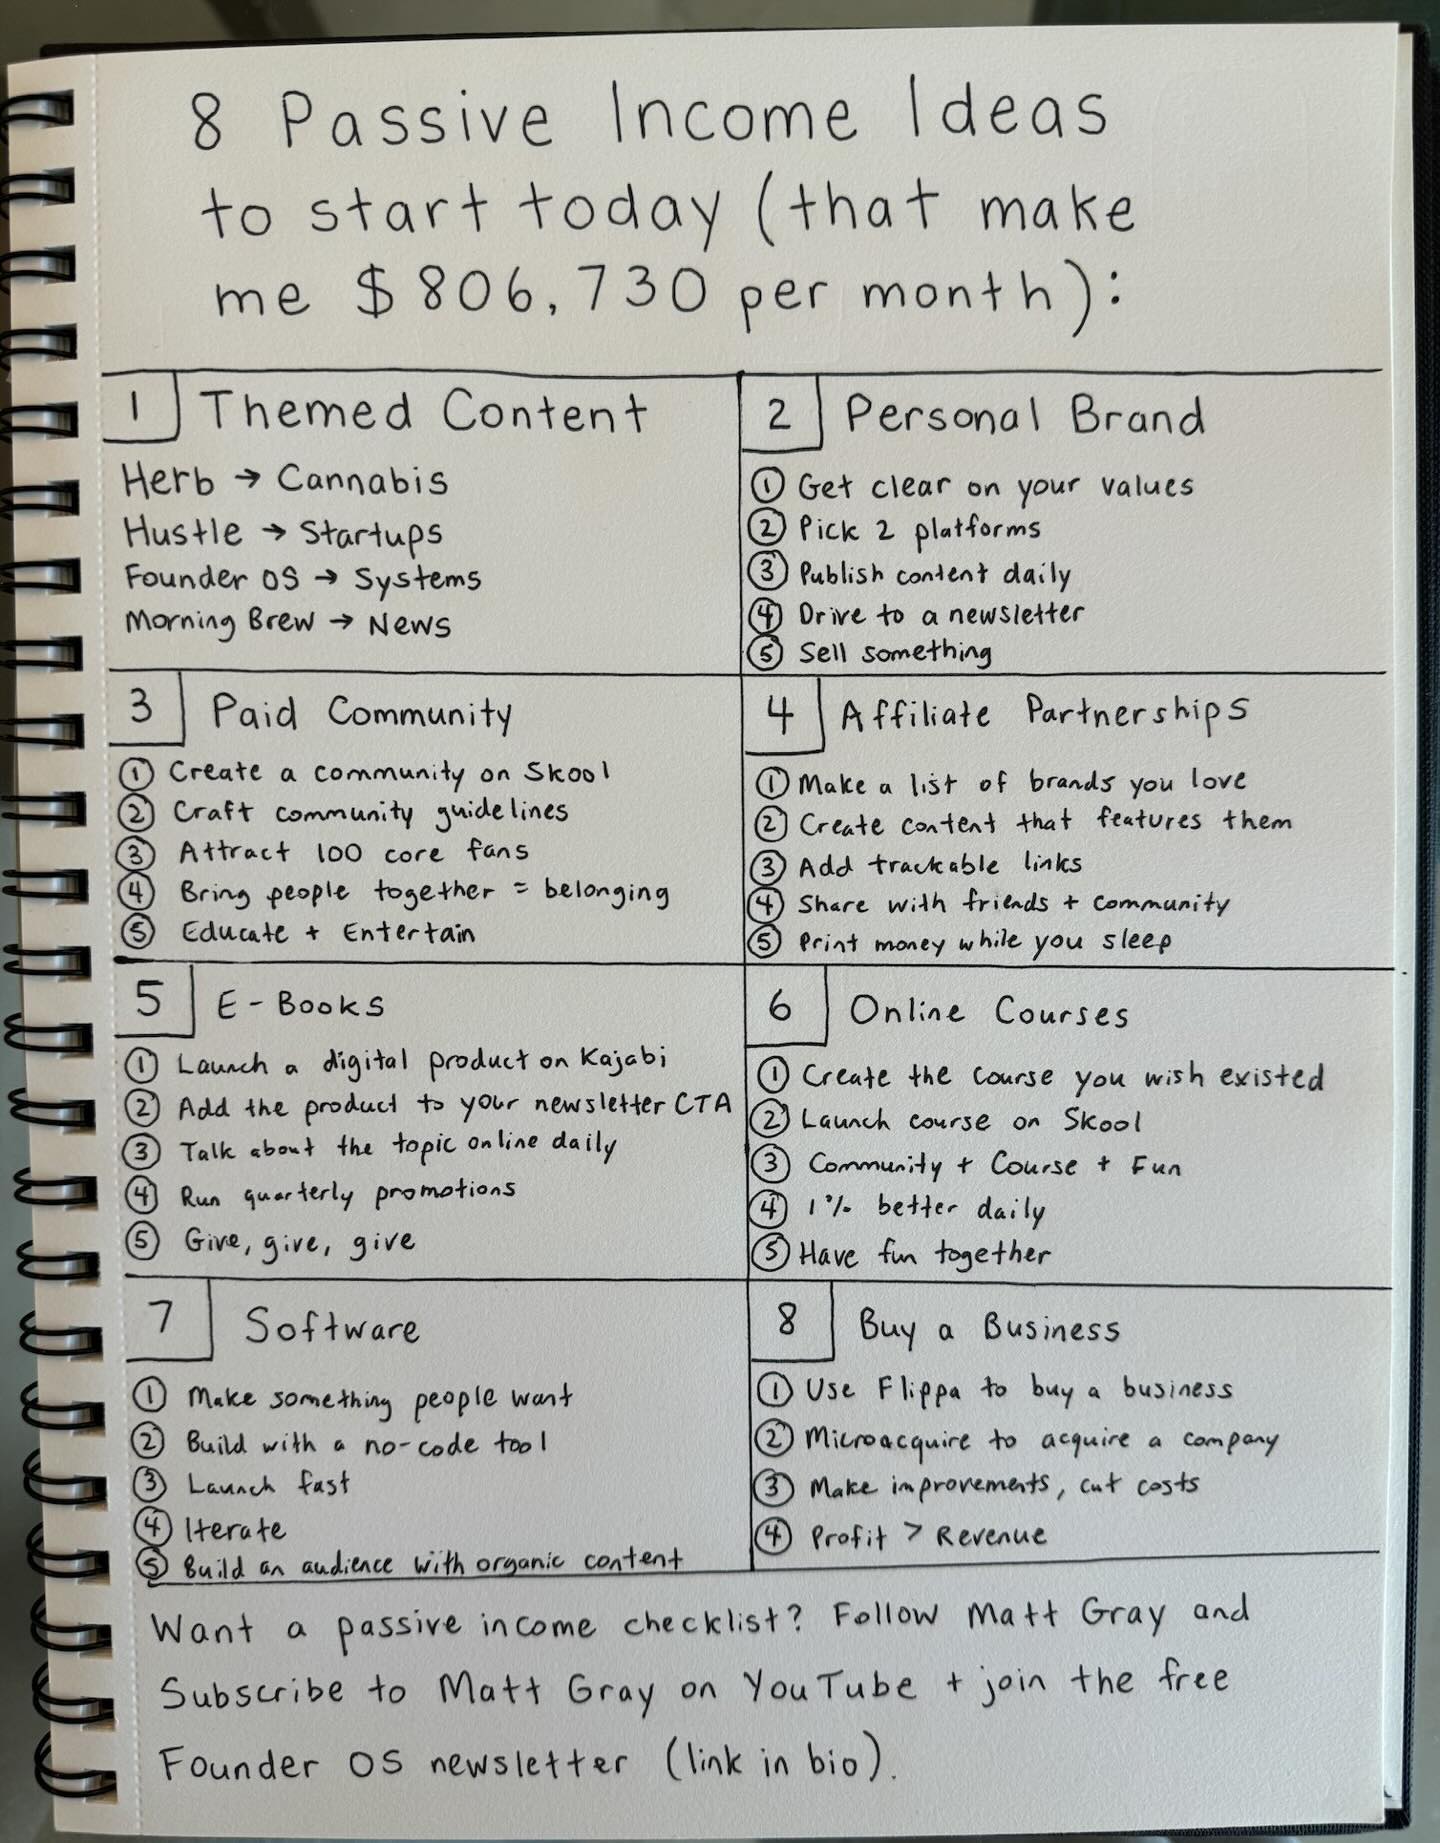 8 Passive Income Ideas
to start today (that make
me $806,730 per month):
1 Themed Content
Herb → Cannabis
Hustle → Startups
Founder OS → Systems
Morning Brew → News
2 Personal Brand
① Get clear on your values
② Pick 2 platforms
③ Publish content daily
④ Drive to a newsletter
⑤ Sell something
3 Paid Community
① Create a community on Skool
② Craft community guidelines
③ Attract 100 core fans
④ Bring people together = belonging
⑤ Educate + Entertain
4 Affiliate Partnerships
① Make a list of brands you love
② Create content that features them
③ Add trackable links
④ Share with friends + community
⑤ Print money while you sleep
5 E-Books
① Launch a digital product on Kajabi
② Add the product to your newsletter CTA
③ Talk about the topic online daily
④ Run quarterly promotions
⑤ Give, give, give
6 Online Courses
① Create the course you wish existed
② Launch course on Skool
③ Community + Course + Fun
④ 1% better daily
⑤ Have fun together
7 Software
① Make something people want
② Build with a no-code tool
③ Launch fast
④ Iterate
⑤ Build an audience with organic content
8 Buy a Business
① Use Flippa to buy a business
② Microacquire to acquire a company
③ Make improvements, cut costs
④ Profit > Revenue
Want a passive income checklist? Follow Matt Gray and
Subscribe to Matt Gray on YouTube + join the free
Founder OS newsletter (link in bio).